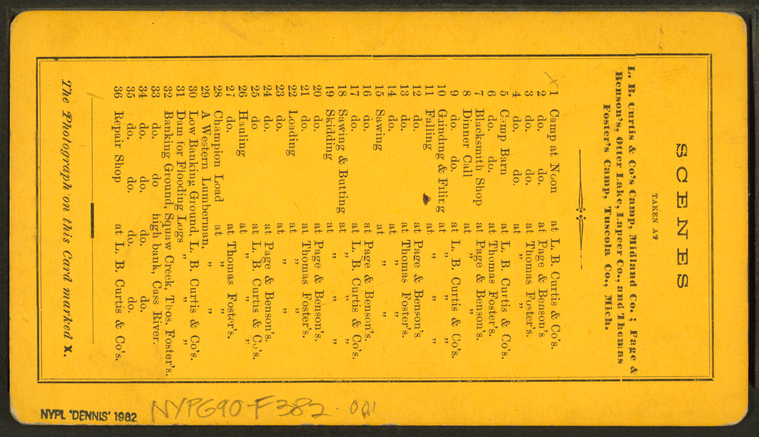 SCENES
TAKEN AT
L. B. Curtis & Co's Camp, Midland Co.; Page &
Benson's, Otter Lake, Lapeer Co., and Thomas
Foster's Camp, Tuscola Co., Mich.
X 1 Camp at Noon at L. B. Curtis & Co's.
2 do. do. at Page & Benson's
3 do. do. at Thomas Foster's.
4 do. do. at " "
5 Camp Barn at L. B. Curtis & Co's.
6 do. do. at Thomas Foster's
7 Blacksmith Shop at Page & Benson's.
8 Dinner Call at " "
9 do. do. at L. B. Curtis & Co's.
10 Grinding & Filing at " "
11 Falling at " "
12 do. at Page & Benson's.
13 do. at Thomas Foster's.
14 do. at " "
15 Sawing at " "
16 do. at Page & Benson's.
17 do. at L. B. Curtis & Co's.
18 Sawing & Butting at " "
19 Skidding at " "
20 do. at Page & Benson's.
21 do. at Thomas Foster's.
22 Loading at " "
23 do. at " "
24 do. at Page & Benson's.
25 do at L. B. Curtis & Co's.
26 Hauling at " "
27 do. at Thomas Foster's.
28 Champion Load at " "
29 A Western Lumberman, " "
30 Low Banking Ground, L. B. Curtis & Co's.
31 Dam for Flooding Logs " "
32 Banking Ground, Squaw Creek, Thos. Foster's.
33 do. do high bank, Cass River.
34 do. do. do. do.
35 do. do. do. do.
36 Repair Shop at L. B. Curtis & Co's.
The Photograph on this Card marked X.
NYPL "DENNIS" 1982
NYPG90-F382 . 001